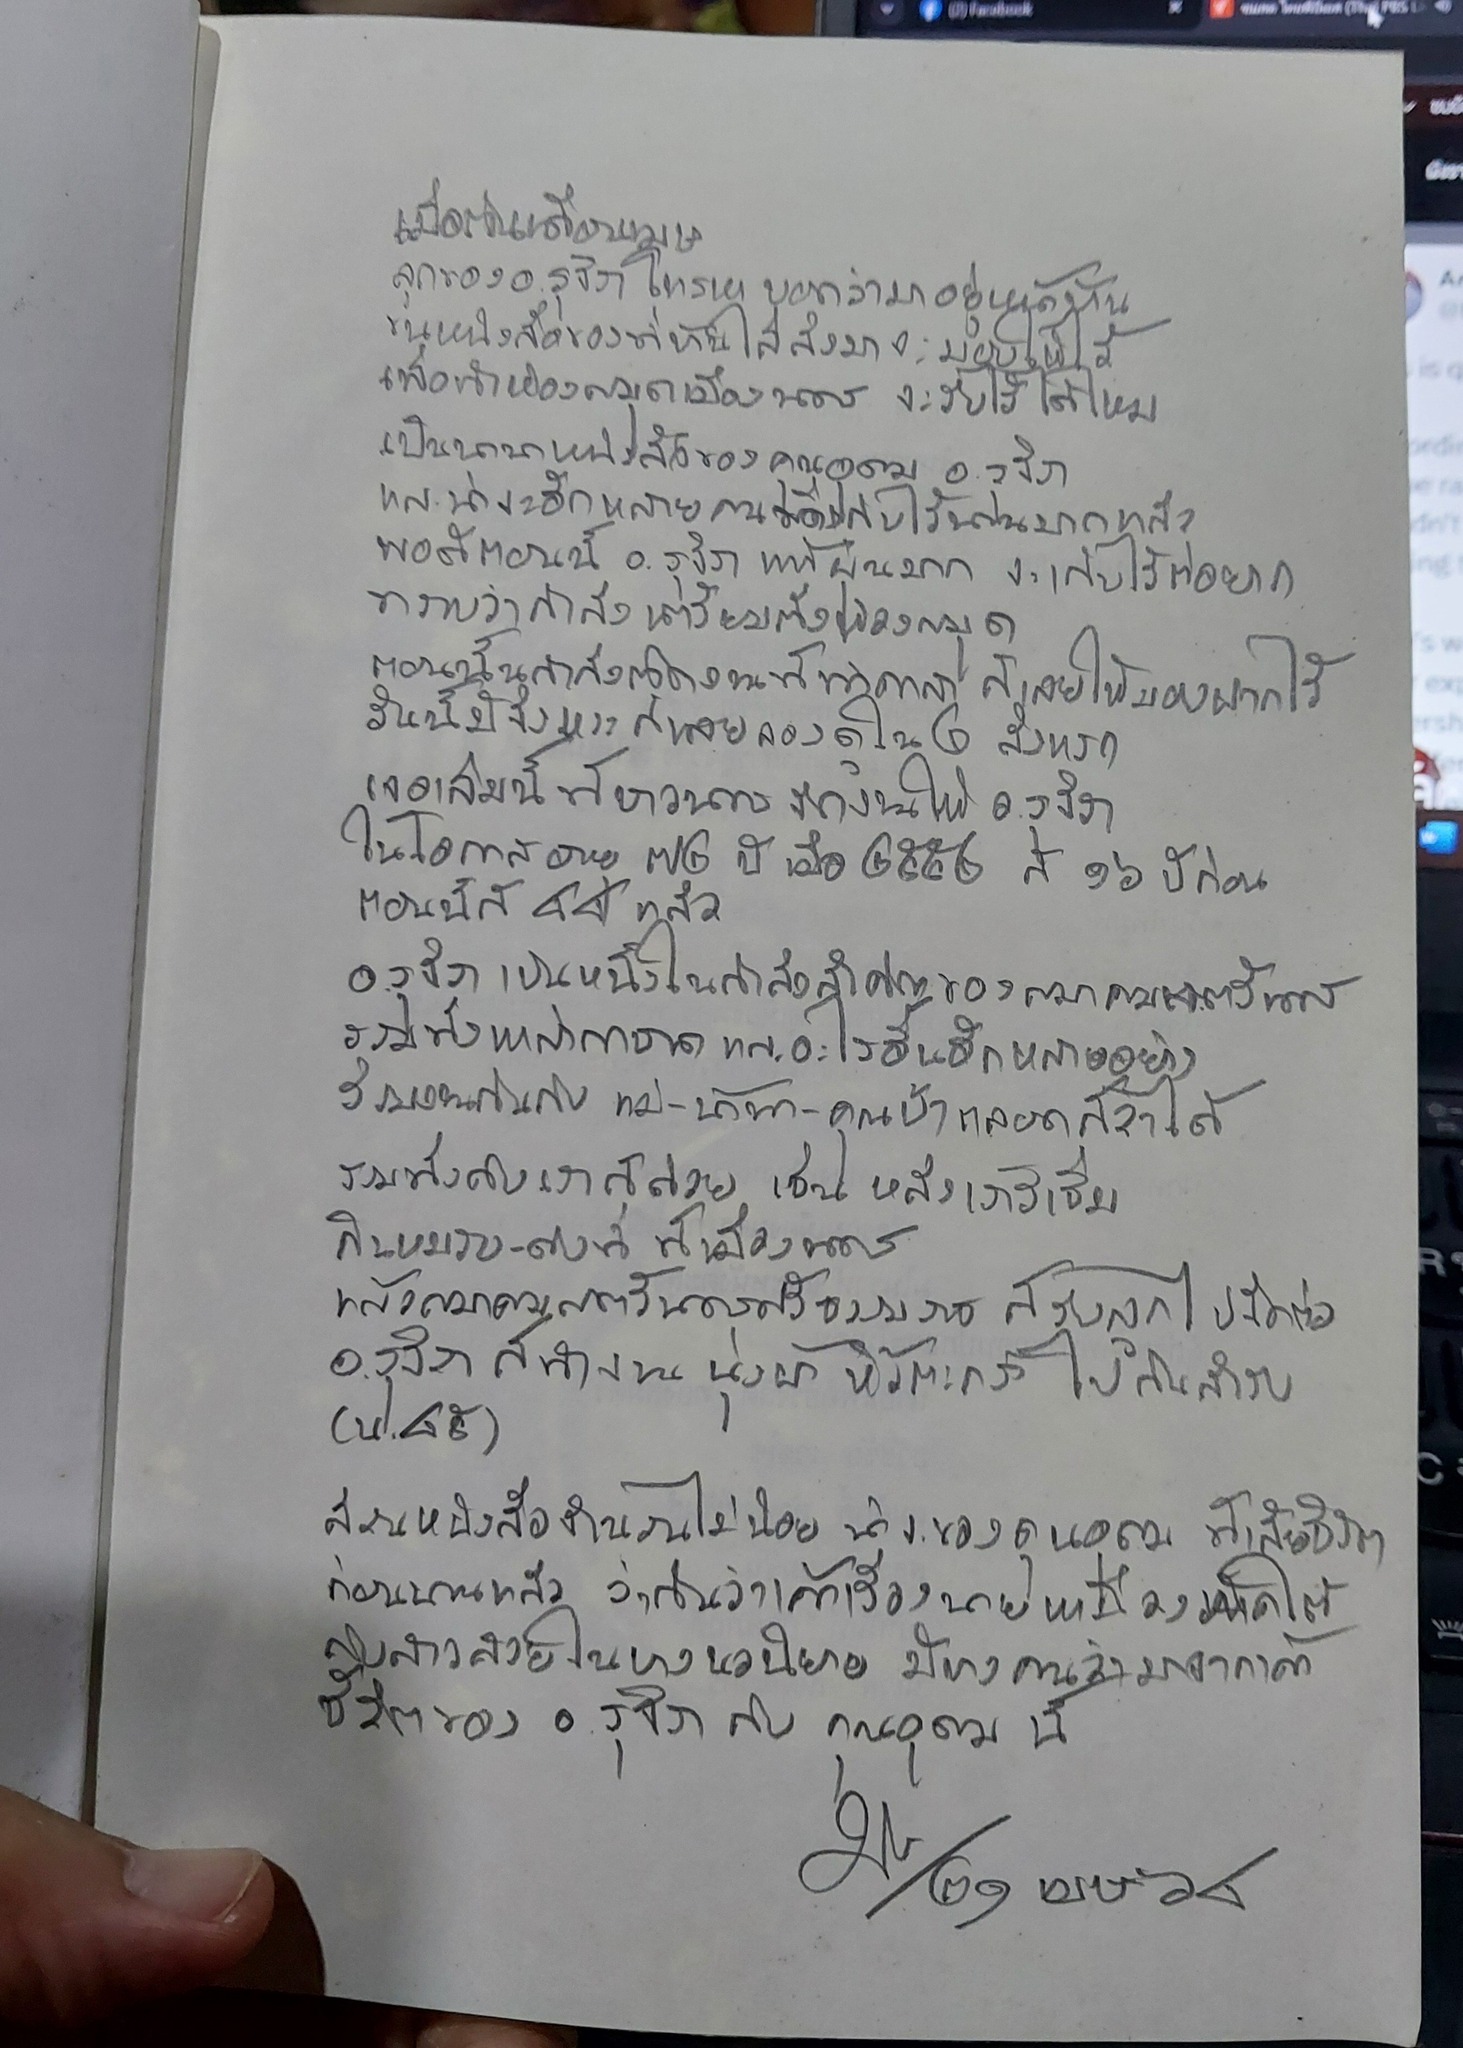 (2) Facebook
เมื่อต้นเดือนเมษ
ลูกของ อ.รุจิรา โทรหา บอกว่ามาอยู่หน้าบ้าน
ขนหนังสือของที่บ้านใส่ลังมา จะมอบให้ไว้
เพื่อทำห้องสมุดเมืองนคร จะรับไว้ได้ไหม
เป็นนานาหนังสือของคุณอุดม อ.รุจิรา
และน่าจะอีกหลายคนที่เก็บไว้นานมากแล้ว
พอดีตอนนี้ อ.รุจิรา แพ้ฝุ่นมาก จะเก็บไว้ต่อยาก
ทราบว่ากำลังเตรียมตั้งห้องสมุด
ตอนนั้นกำลังติดงานที่ท่าศาลา ก็เลยให้วางฝากไว้
วันนี้มีจังหวะ ก็เลยลองดูใน ๒ ลังแรก
เจอเล่มนี้ที่ชาวนคร จัดงานให้ อ.รุจิรา
ในโอกาสอายุ ๗๒ ปี เมื่อ ๒๕๕๒ ก็ ๑๖ ปีก่อน
ตอนนี้ก็ ๘๘ แล้ว
อ.รุจิรา เป็นหนึ่งในกำลังสำคัญของสมาคมสตรีนคร
รวมทั้งเหล่ากาชาด และอะไรอื่นอีกหลายอย่าง
ร่วมงานกันกับ แม่-น้าพา-คุณป้า ตลอดก็ว่าได้
รวมทั้งกับเราก็ด้วย เช่น หลังเราริเริ่ม
กินหมรับ-ที่เมืองนคร
แล้วสมาคมสตรีนครศรีธรรมราช ก็รับลูกไปจัดต่อ
อ.รุจิรา ก็ทำงาน นุ่งผ้า หิ้วตะกร้า ไปกินสำรับ
(น.๘๕)
ส่วนหนังสือจำนวนไม่น้อย น่าจะของคุณอุดม ที่เสียชีวิต
ก่อนนานแล้ว ว่ากันว่าเค้าเรื่องนายเหมืองปักษ์ใต้
กับสาวสวยในบางนวนิยาย มีบางคนว่ามาจากเค้า
ชีวิตของ อ.รุจิรา กับ คุณอุดม นี้
๒๑ เมษ ๖๘